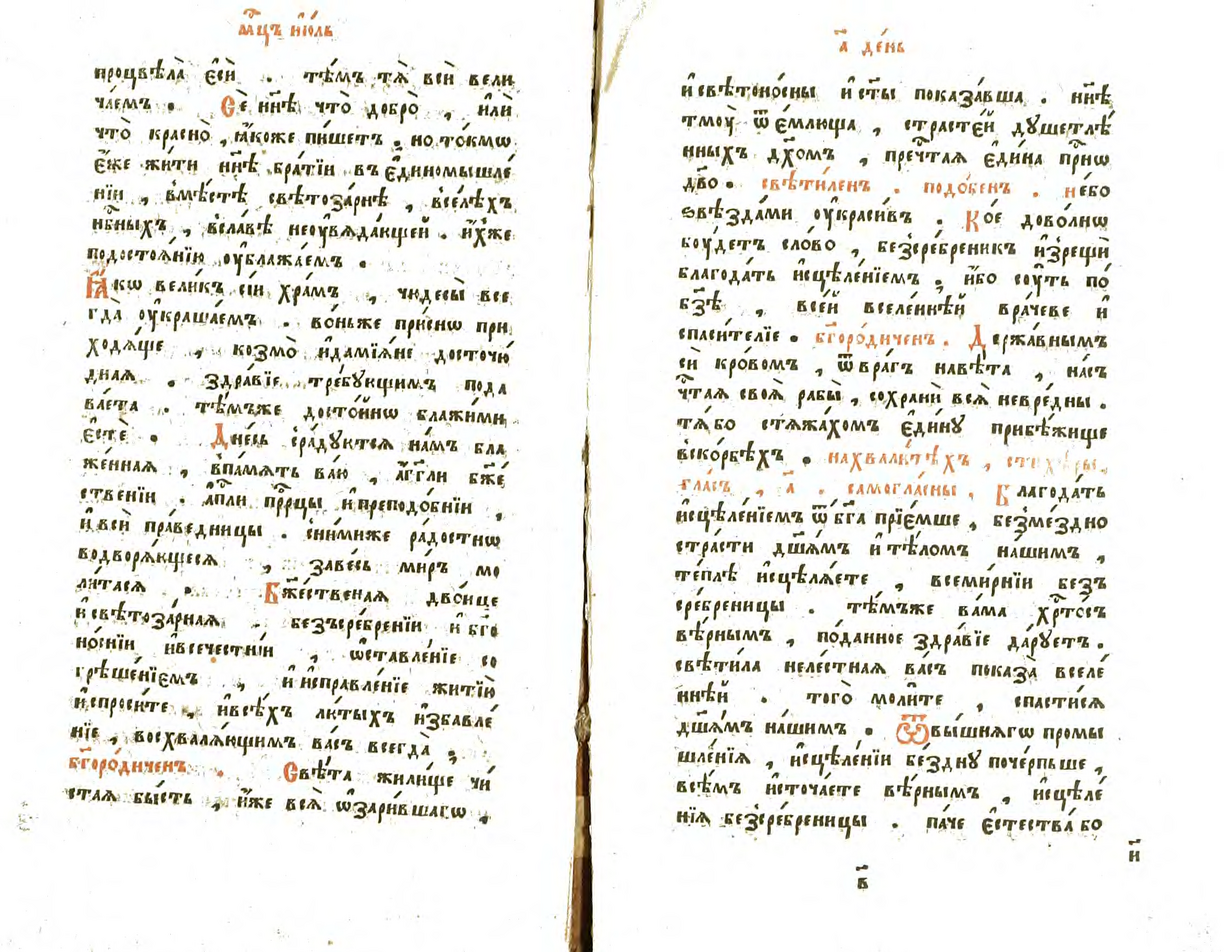 мⷭ҇цъ и҆ю́ль
процвѣла̀ є҆сѝ . тѣ́мъ тѧ̀ всѝ вели
ча́емъ . Сѐ нн҃ѣ что̀ добро̀ , и҆лѝ
что̀ красно̀ , ꙗ҆́коже пи́шетъ , но то́кмѡ
є҆́же жи́ти нн҃ѣ бра́тїи въ є҆диномышле́
нїи , вмѣ́стѣ свѣтоза́рнѣ , вселѣ́хъ
нбⷭ҇ныхъ , всла́вѣ неоувѧда́ющей . и҆́хже
подостоѧ́нїю оу҆блажа́емъ .
Ꙗ҆́кѡ вели́къ сі́и хра́мъ , чюдесы̀ все
гда̀ оу҆краша́емъ . во́ньже при́снѡ при
ходѧ́ще , козмо̀ и҆дамїѧ́не досточю́
днаѧ . здра́вїе тре́бующимъ пода
ва́ета . тѣ́мъже досто́йнѡ блажи́ми
є҆стѐ . Дне́сь сра́дуютсѧ на́мъ бла
же́ннаѧ , впа́мѧть ва́ю , а҆́гг҃ли бж҃е́
ственїи . а҆пⷭ҇ли прⷪ҇рцы и҆преподо́бнїи ,
и҆всѝ пра́ведницы . сни́миже ра́достнѡ
водворѧ́ющесѧ , заве́сь ми́ръ мо
ли́тасѧ . Бж҃е́ственаѧ дво́ице
и҆свѣтоза́рнаѧ . безъсре́бренїи и҆ бг҃о
но́снїи и҆всече́стнїи , ѡ҆ставле́нїе со
грѣше́нїемъ , и҆ и҆справле́нїе житїю̀
и҆спроси́те , и҆всѣ́хъ лю́тыхъ и҆збавле́
нїе , восхвалѧ́ющимъ ва́съ всегда̀ .
бг҃оро́диченъ . Свѣ́та жили́ще чи́
стаѧ бы́сть , и҆́же всѧ̀ ѡ҆зари́вшагѡ ,
а҃ де́нь
и҆свѣтоно́сны и҆ ст҃ы показа́вша . нн҃ѣ
тмоу̀ ѿє́млюща , страсте́й душетлѣ́
нныхъ дх҃омъ , пречⷭ҇таѧ є҆ди́на прⷭ҇нѡ
дв҃о . свѣти́ленъ . подо́бенъ . не́бо
ѕвѣзда́ми оу҆краси́въ . Ко́е дово́лнѡ
боу́детъ сло́во , безсре́бреникъ и҆зрещѝ
благода́ть и҆сцѣле́нїемъ . и҆́бо соу́ть по́
бзѣ , все́й вселе́ннѣй вра́чеве и҆
спаси́телїе . бг҃оро́диченъ . Держа́внымъ
сѝ кро́вомъ , ѿвра́гъ навѣ́та , на́съ
чⷭ҇таѧ своѧ̀ рабы̀ , сохранѝ всѧ̀ невре́дны .
тѧ́ бо стѧжа́хомъ є҆ди́ну прибѣ́жище
вско́рбѣхъ . на хвали́тѣхъ , стихѣ́ры ,
гла́съ , а҃ . самогла́сны . Благода́ть
и҆сцѣле́нїемъ ѿ бг҃а прїе́мше , безме́здно
стра́сти дш҃а́мъ и҆ тѣло́мъ на́шимъ ,
те́плѣ и҆сцѣлѧ́ете , всеми́рнїи безъ
сре́бреницы . тѣ́мъже ва́ма хрⷭ҇то́съ
вѣ́рнымъ , по́данное здра́вїе да́руетъ .
свѣти́ла неле́стнаѧ ва́съ показа̀ вселе́
ннѣй . того̀ моли́те , спасти́сѧ
дш҃а́мъ на́шимъ . Ѿвы́шнѧгѡ промы
шле́нїѧ , и҆сцѣле́нїи бе́здну поче́рпьше ,
всѣ́мъ и҆сточа́ете вѣ́рнымъ , и҆сцѣле́
нїѧ безсре́бреницы . па́че є҆стества́ бо
и҃
в҃